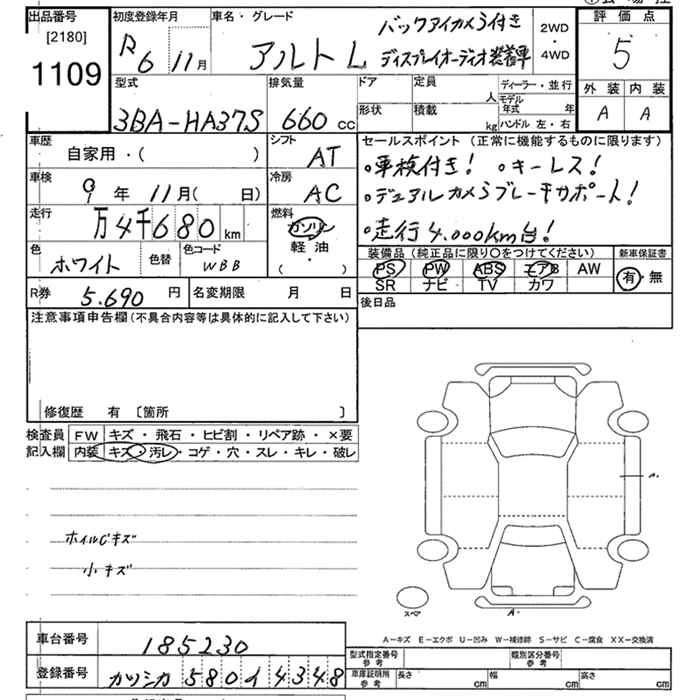 出品番号
[2180]
1109
初度登録年月
R6 11月
車名・グレード
アルト L
バックアイカメラ付き
ディスプレイオーディオ装着車
2WD
・
4WD
評価点
5
外装 内装
A A
型式
3BA-HA37S
排気量
660 cc
ドア
定員 人
形状
積載 kg
ディーラー・並行
モデル年式 年
ハンドル 左・右
車歴
自家用・( )
シフト
AT
車検
9年 11月( 日)
冷房
AC
走行
万4千680 km
燃料
ガソリン
軽油
( )
色
ホワイト
色替
色コード
WBB
R券 5.690 円
名変期限 月 日
セールスポイント (正常に機能するものに限ります)
○車検付き! ○キーレス!
○デュアルカメラブレーキサポート!
○走行4.000km台!
装備品 (純正品に限り○をつけてください)
PS PW ABS エアB AW
SR ナビ TV カワ
新車保証書
有・無
後日品
注意事項申告欄 (不具合内容等は具体的に記入して下さい)
修復歴 有 〔箇所 〕
検査員記入欄
FW キズ・飛石・ヒビ割・リペア跡・×要
内装 キズ・汚レ・コゲ・穴・スレ・キレ・破レ
ホイルCキズ
小キズ
A
スペア
A
A-キズ E-エクボ U-凹み W-補修跡 S-サビ C-腐食 XX-交換済
車台番号 185230
登録番号 カツシカ 580 イ 4348
型式指定番号 参考
類別区分番号 参考
車庫証明用 参考
長さ cm 幅 cm 高さ cm